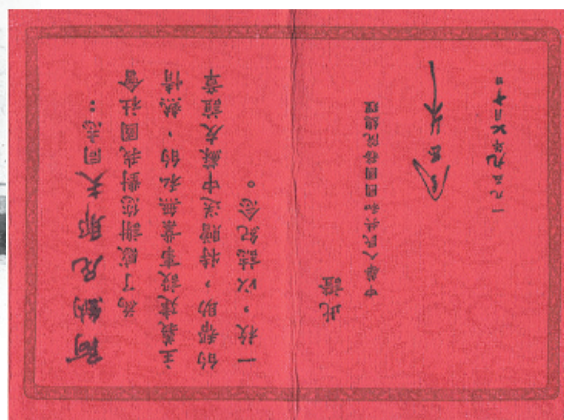 同志：
為了感謝您對我國社會
主義建設事業無私的、熱情
的幫助，特贈送中蘇友誼章
一枚，以誌紀念。
此證
中華人民共和國國務院總理
周恩來